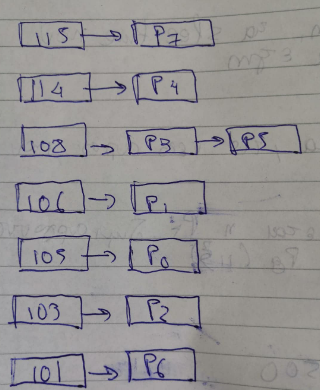 115 → P7
114 → P4
108 → P3 → P5
106 → P1
105 → P0
103 → P2
101 → P6